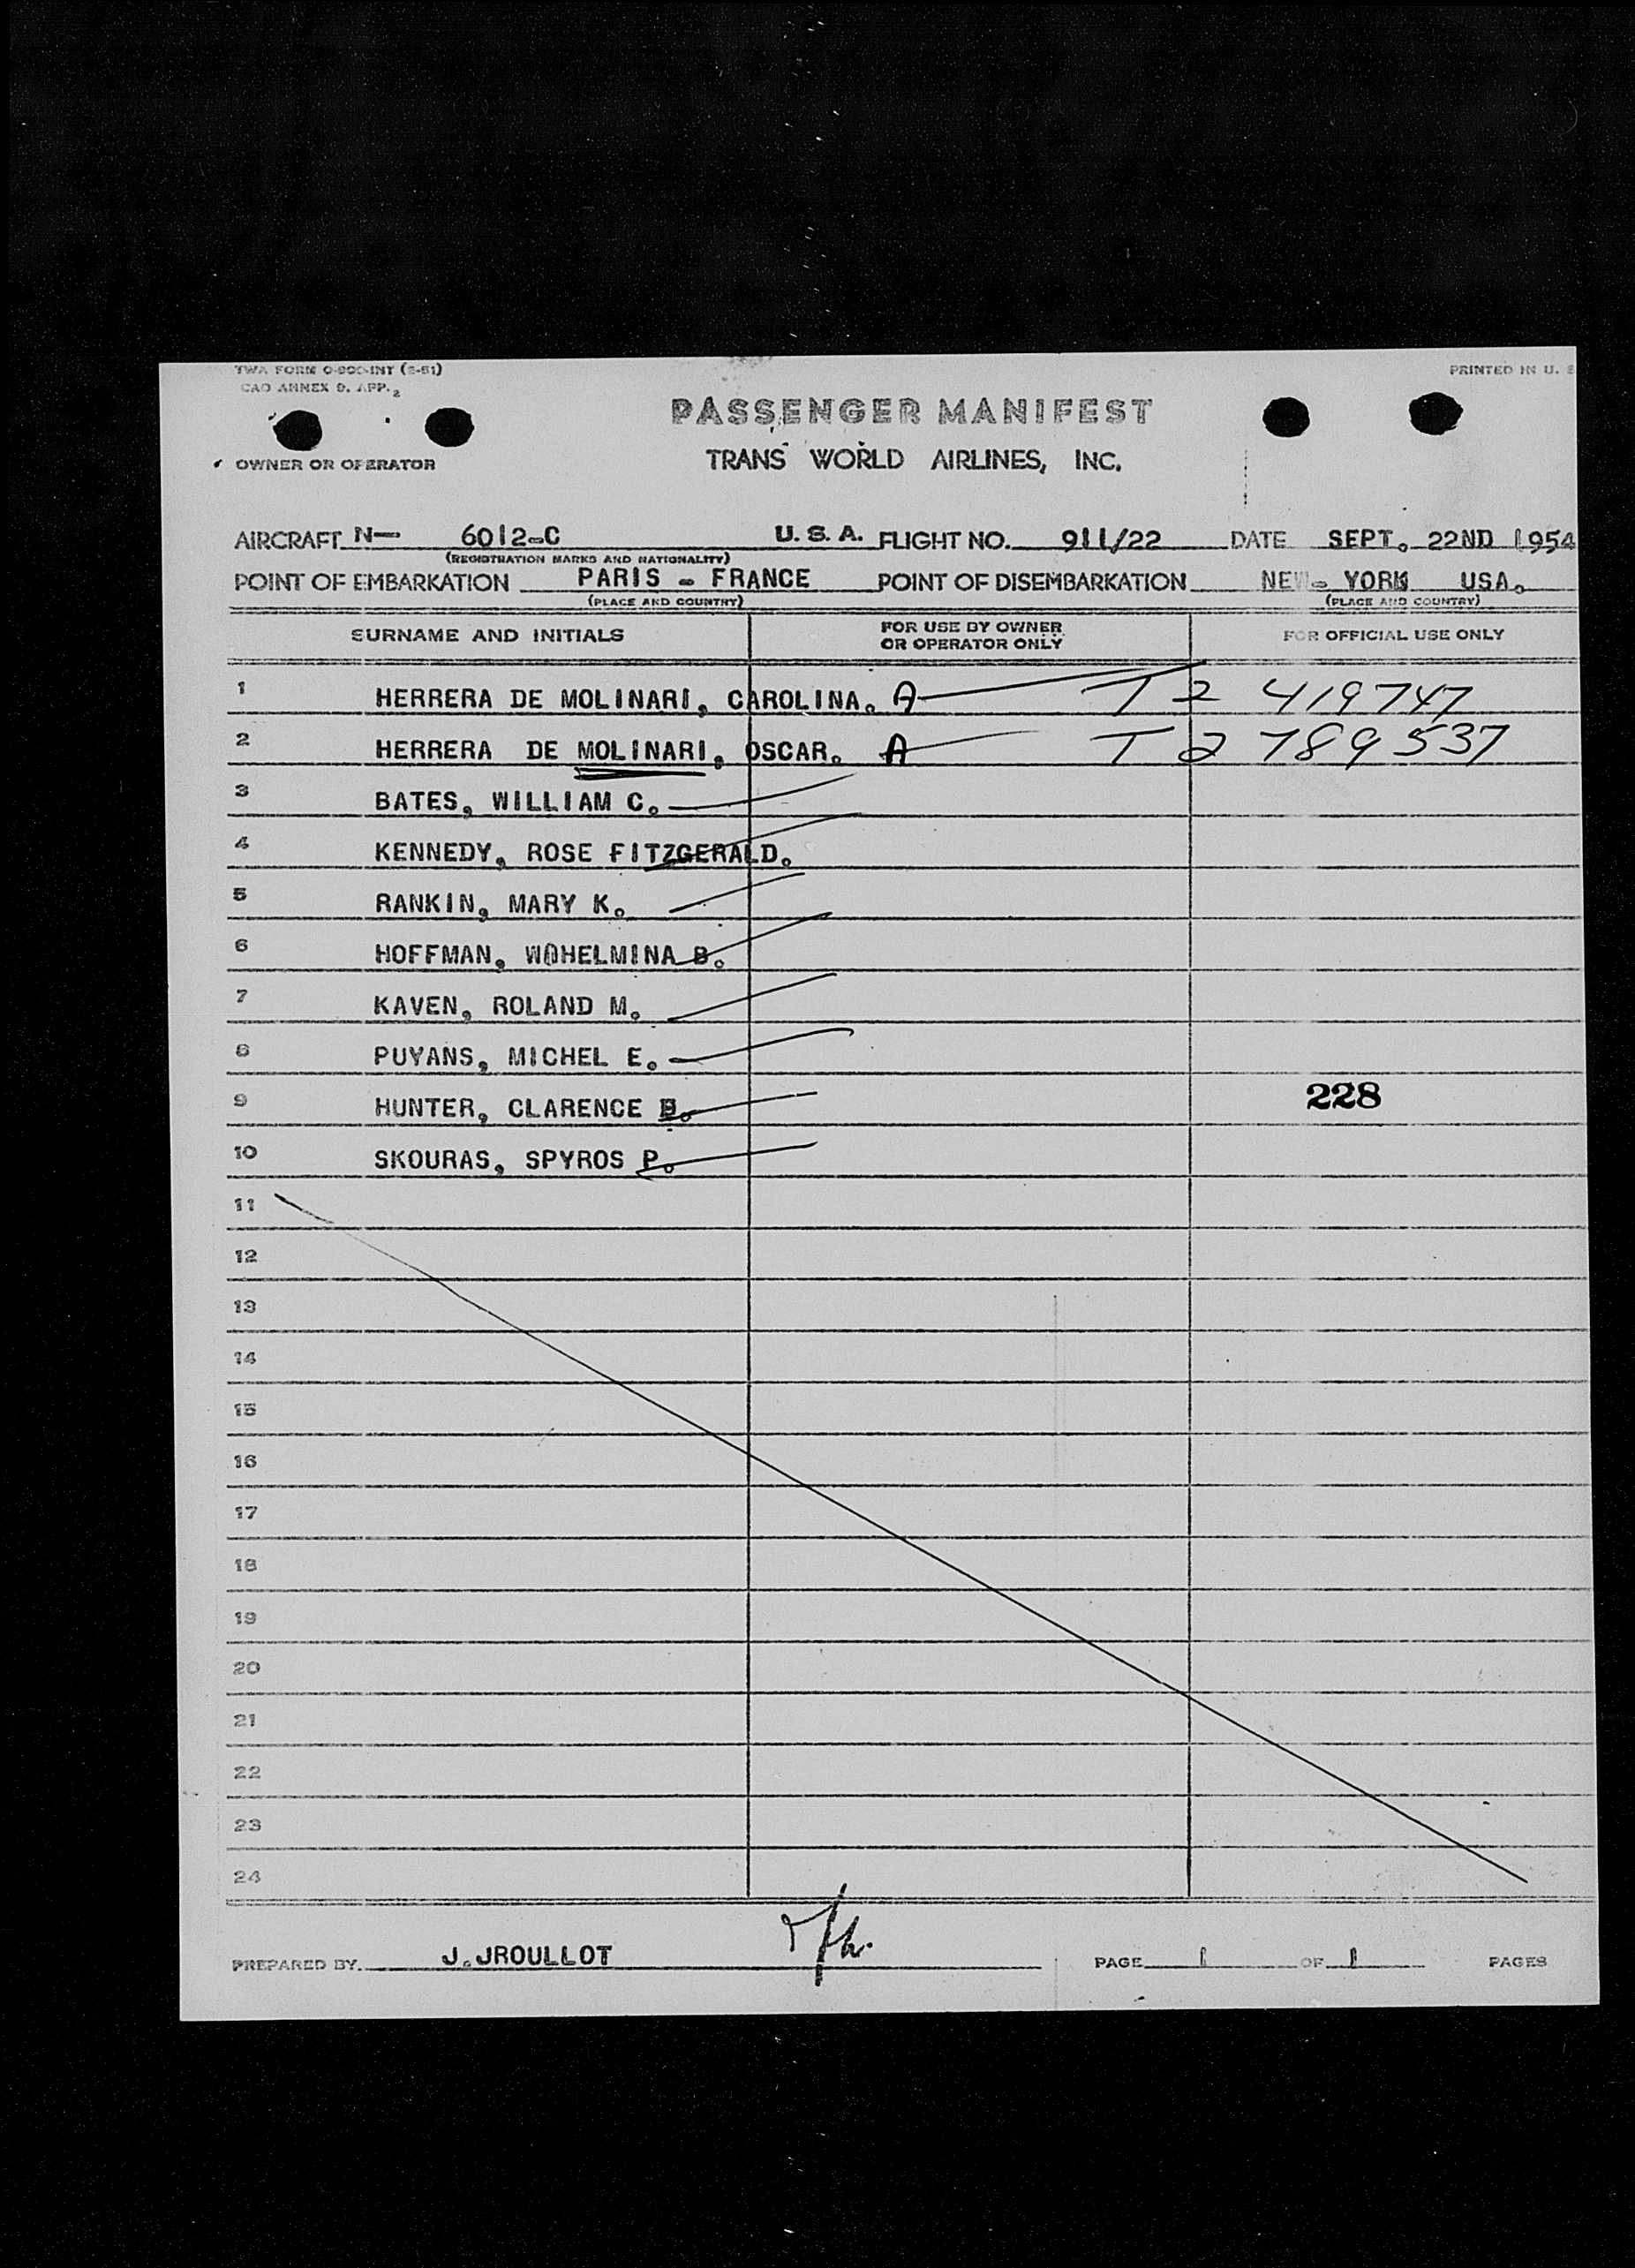 TWA FORM O-800-INT (2-51) PRINTED IN U. S
CAO ANNEX 9. APP. 2
PASSENGER MANIFEST
OWNER OR OPERATOR TRANS WORLD AIRLINES, INC.
AIRCRAFT N— 6012-C U. S. A. FLIGHT NO. 911/22 DATE SEPT. 22ND 1954
(REGISTRATION MARKS AND NATIONALITY)
POINT OF EMBARKATION PARIS - FRANCE POINT OF DISEMBARKATION NEW- YORK USA.
(PLACE AND COUNTRY) (PLACE AND COUNTRY)
SURNAME AND INITIALS FOR USE BY OWNER OR OPERATOR ONLY FOR OFFICIAL USE ONLY
1 HERRERA DE MOLINARI, CAROLINA. A T 2 419747
2 HERRERA DE MOLINARI, OSCAR. A T 2 789537
3 BATES, WILLIAM C.
4 KENNEDY, ROSE FITZGERALD.
5 RANKIN, MARY K.
6 HOFFMAN, B.
7 KAVEN, ROLAND M.
8 PUYANS, MICHEL E.
9 HUNTER, CLARENCE 228
10 SKOURAS, SPYROS P.
11
12
13
14
15
16
17
18
19
20
21
22
23
24
PREPARED BY. J.JROULLOT PAGE 1 OF 1 PAGES